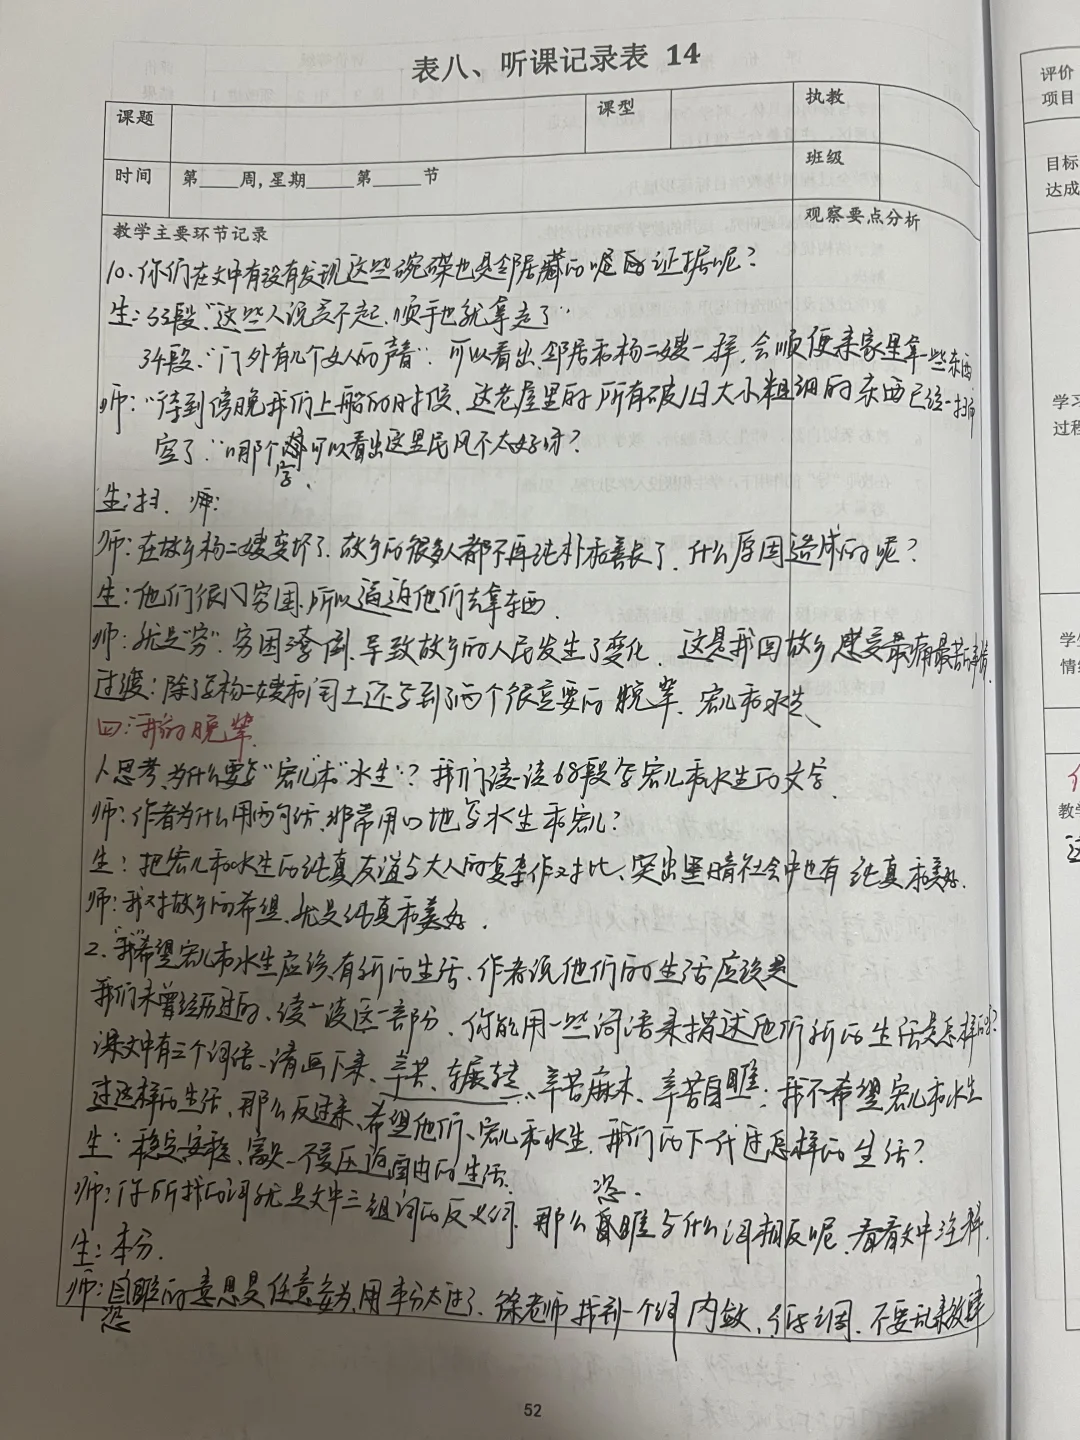 表八、听课记录表 14
课题 课型 执教
时间 第____周,星期____第____节 班级
教学主要环节记录 观察要点分析
10.你们在文中有没有发现这些碗碟也是邻居藏的呢 证据呢?
生:33段,"这些人说买不起,顺手也就拿走了"
34段,"门外有几个女人的声音",可以看出,邻居和杨二嫂一样,会顺便来家里拿一些东西
师:"待到傍晚我们上船的时候,这老屋里的所有破旧大小粗细的东西已经一扫
空了",哪个字可以看出这里民风不太好呀?
生:扫. 师:
师:在故乡杨二嫂变坏了,故乡的很多人都不再纯朴和善良了,什么原因造成的呢?
生:他们很 穷困,所以逼迫他们去拿东西.
师:就是"穷",穷困潦倒,导致故乡的人民发生了变化,这是我回故乡感受最痛最苦的事情
过渡:除了写杨二嫂和闰土还写到了两个很重要的晚辈,宏儿和水生
四:我的晚辈.
1.思考,为什么要写"宏儿"和"水生"?我们读一读68段写宏儿和水生的文字.
师:作者为什么用两句话,非常用心地写水生和宏儿?
生:把宏儿和水生的纯真友谊与大人的复杂作对比,突出黑暗社会中也有纯真和美好.
师:我对故乡的希望,就是纯真和美好.
2."我"希望宏儿和水生应该有新的生活,作者说他们的生活应该是
我们未曾经历过的,读一读这一部分,你能用一些词语来描述他们新的生活是怎样的?
课文中有三个词语,请画下来,辛苦、辗转……、辛苦麻木、辛苦恣睢;我不希望宏儿和水生
过这样的生活,那么反过来,希望他们、宏儿和水生,我们的下一代过怎样的生活?
生:稳定安稳、富足、不受压迫自由的生活.
师:你所找的词就是文中三组词的反义词,那么恣睢与什么词相反呢,看看文中注释.
生:本分.
师:恣睢的意思是任意妄为,用本分太过了,徐老师找到一个词 内敛,不要乱来放肆
52
评价
项目
目标
达成
学习
过程